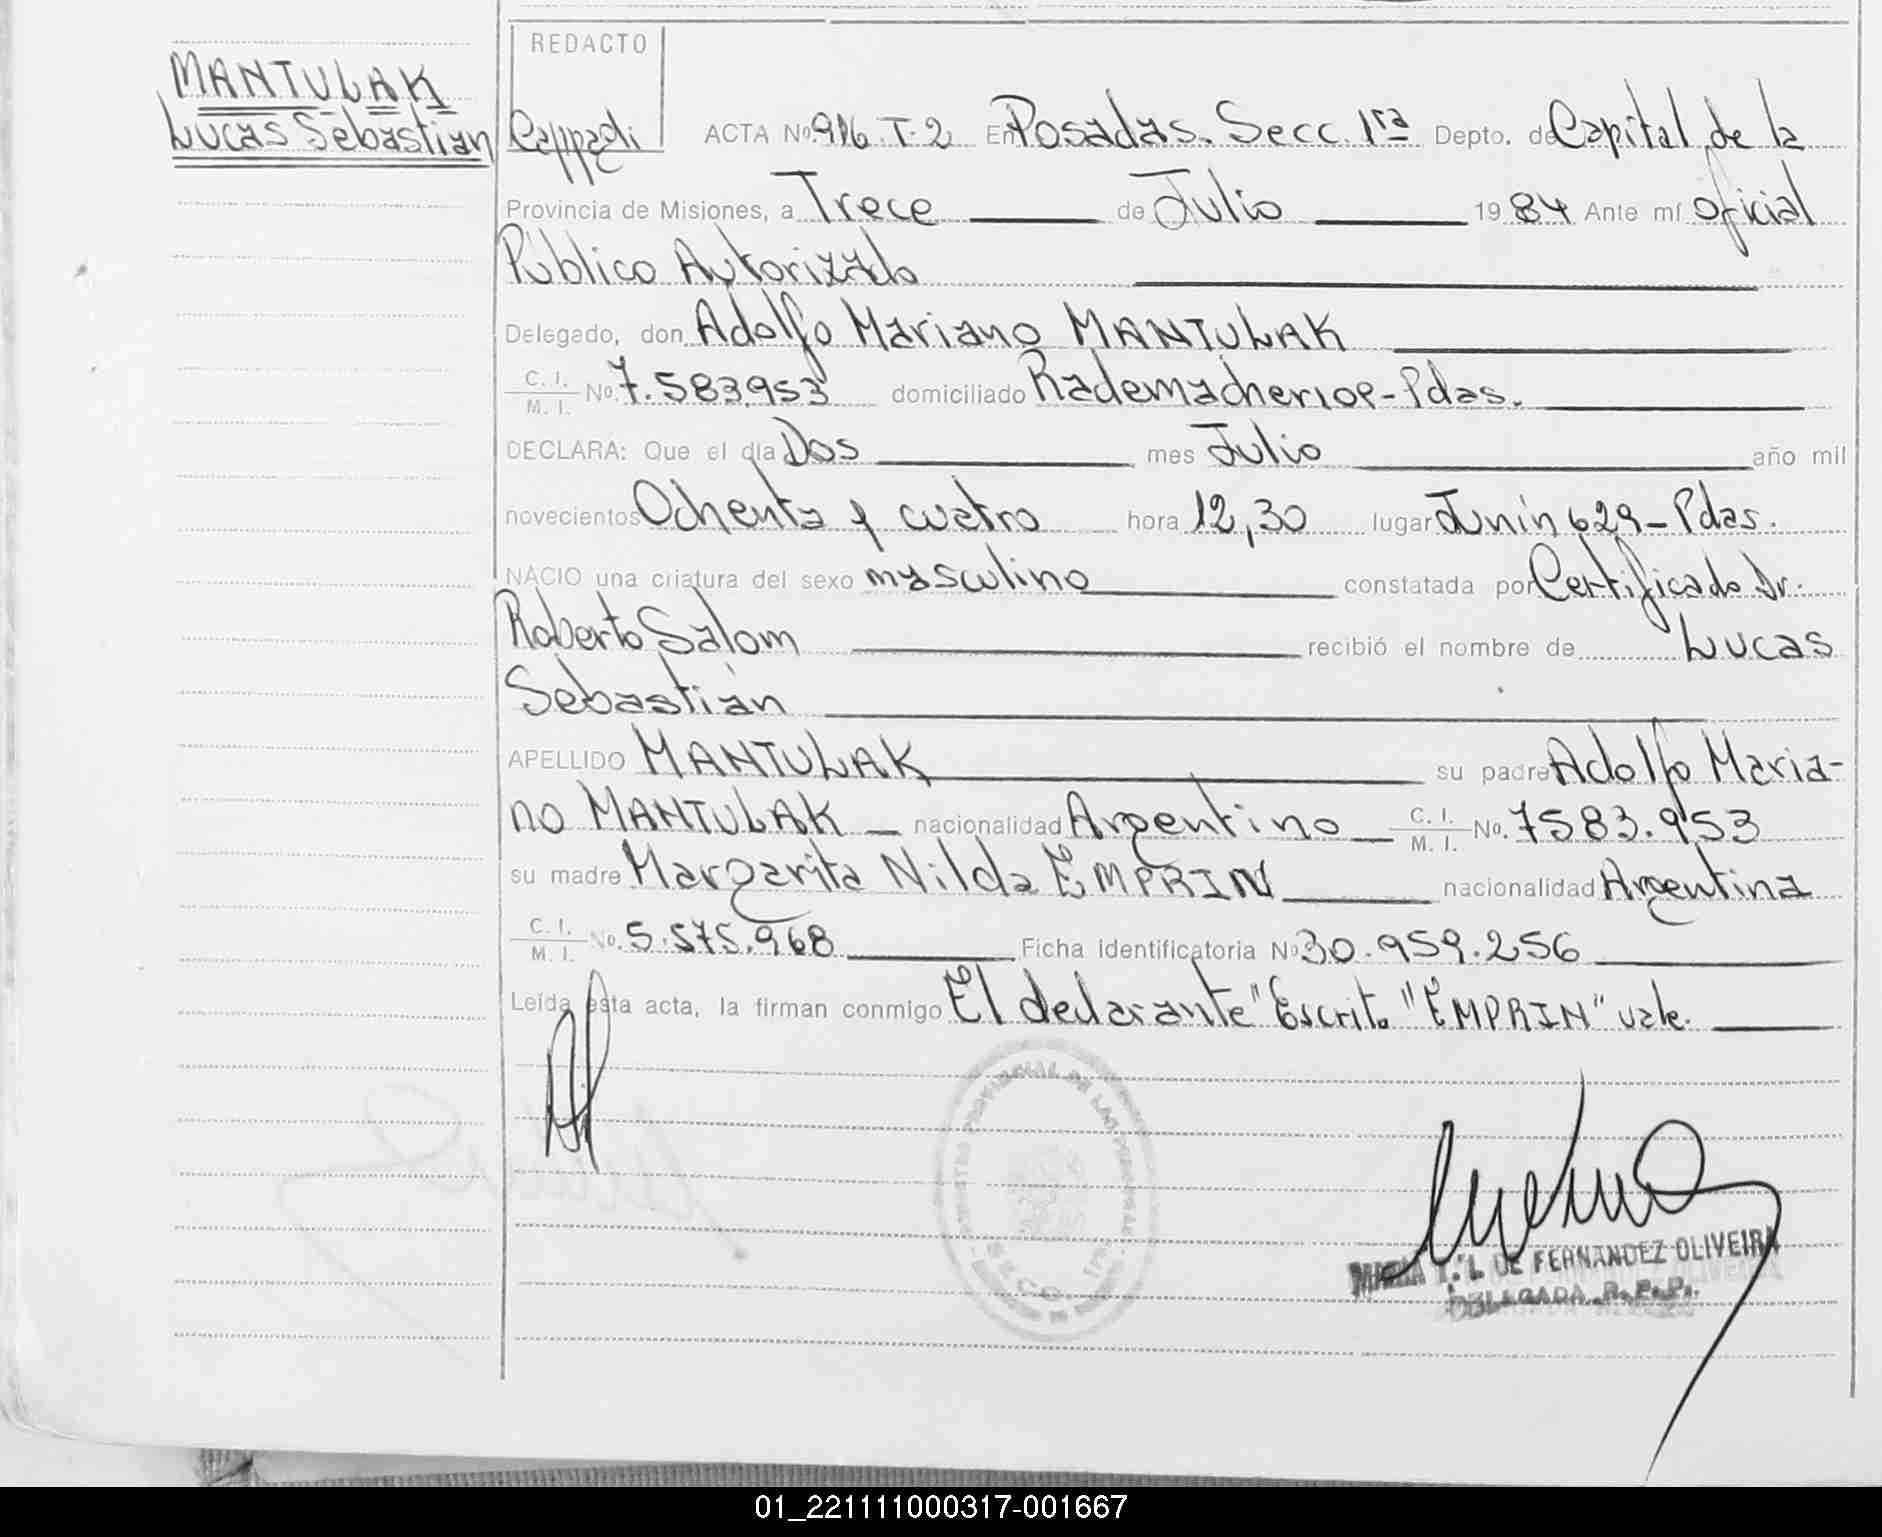 MANTULAK
Lucas Sebastian
REDACTO
ACTA No 916 T. 2 En Posadas. Secc. 1ra Depto. de Capital de la
Provincia de Misiones, a Trece de Julio 1984 Ante mí oficial
Público Autorizado
Delegado, don Adolfo Mariano MANTULAK
C. I. / M. I. No. 7.583.953 domiciliado Rademacher 108 - Pdas.
DECLARA: Que el día Dos mes Julio año mil
novecientos Ochenta y cuatro hora 12,30 lugar Junín 629 - Pdas.
NACIO una criatura del sexo masculino constatada por Certificado Dr.
Roberto Salom recibió el nombre de Lucas
Sebastián
APELLIDO MANTULAK su padre Adolfo Maria-
no MANTULAK nacionalidad Argentino C. I. / M. I. No. 7583.953
su madre Margarita Nilda EMPRIN nacionalidad Argentina
C. I. / M. I. No. 5.575.968 Ficha identificatoria No 30.959.256
Leída esta acta, la firman conmigo El declarante "Escrito "EMPRIN" vale.
MARIA DE FERNANDEZ OLIVEIRA
DELEGADA R.P.P.
01_221111000317-001667